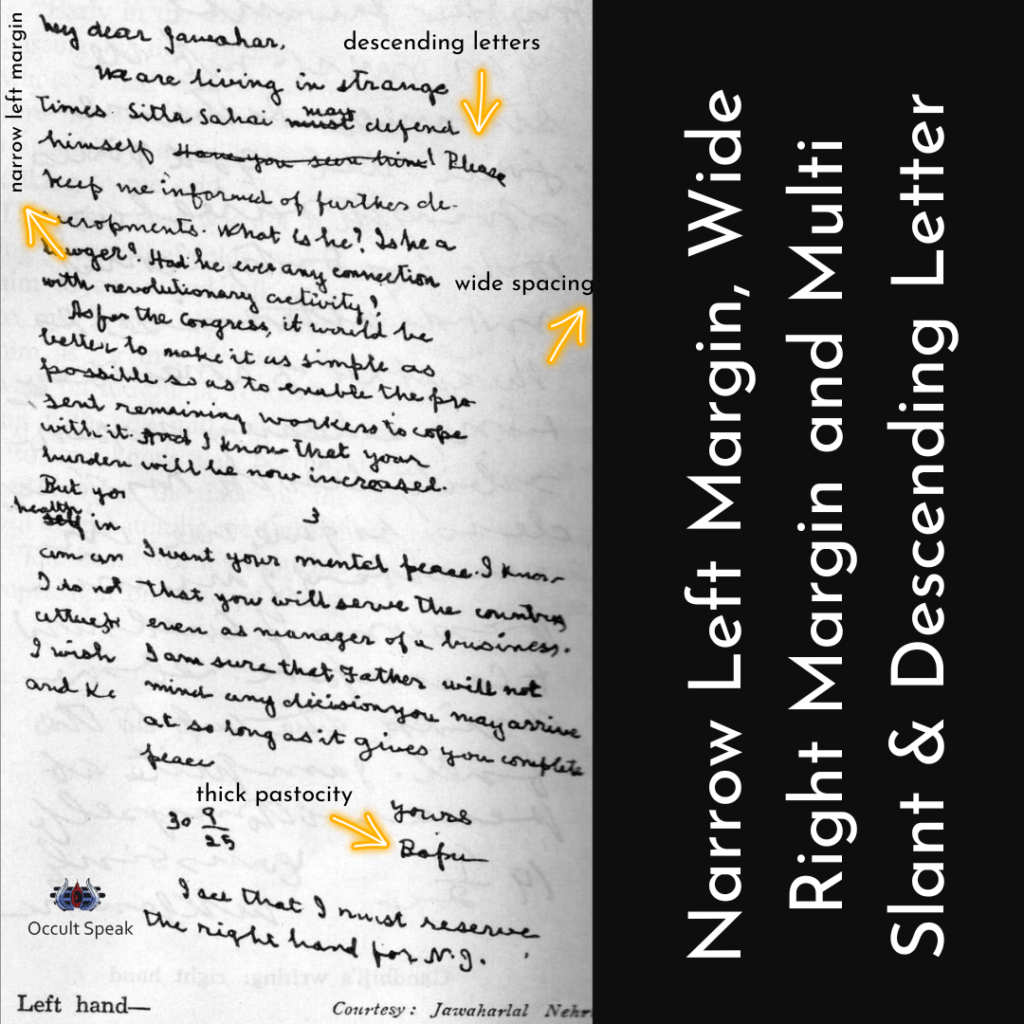 narrow left margin
descending letters
wide spacing
thick pastocity
My dear Jawahar,
We are living in strange
times. Sitla Sahai may
must defend
himself Have you seen him! Please
keep me informed of further de-
velopments. What is he? Is he a
lawyer? Had he ever any connection
with revolutionary activity?
As for the Congress, it would be
better to make it as simple as
possible so as to enable the pre
sent remaining workers to cope
with it. And I know that your
burden will be now increased.
But you
health
in
3
can an
I do not
I wish
and Ke
I want your mental peace. I know
that you will serve the country
even as manager of a business.
I am sure that Father will not
mind any decision you may arrive
at so long as it gives you complete
peace
30 9
25
Yours
Bapu
I see that I must reserve
the right hand for N.J.
Occult Speak
Left hand—
Courtesy: Jawaharlal Nehr
Narrow Left Margin, Wide
Right Margin and Multi
Slant & Descending Letter